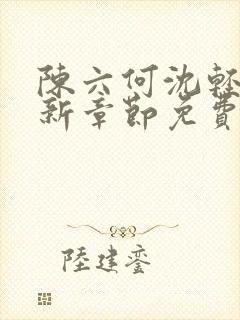 陳六何沈輕
新章節免費
陸建鑾